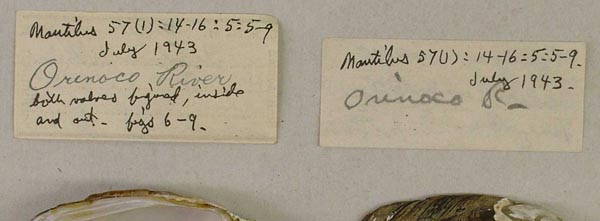 Nautilus 57(1): 14-16: 5: 5-9
July 1943
Orinoco River
both valves figured, inside
and out. figs 6-9.
Nautilus 57(1): 14-16: 5: 5-9.
July 1943.
Orinoco R.